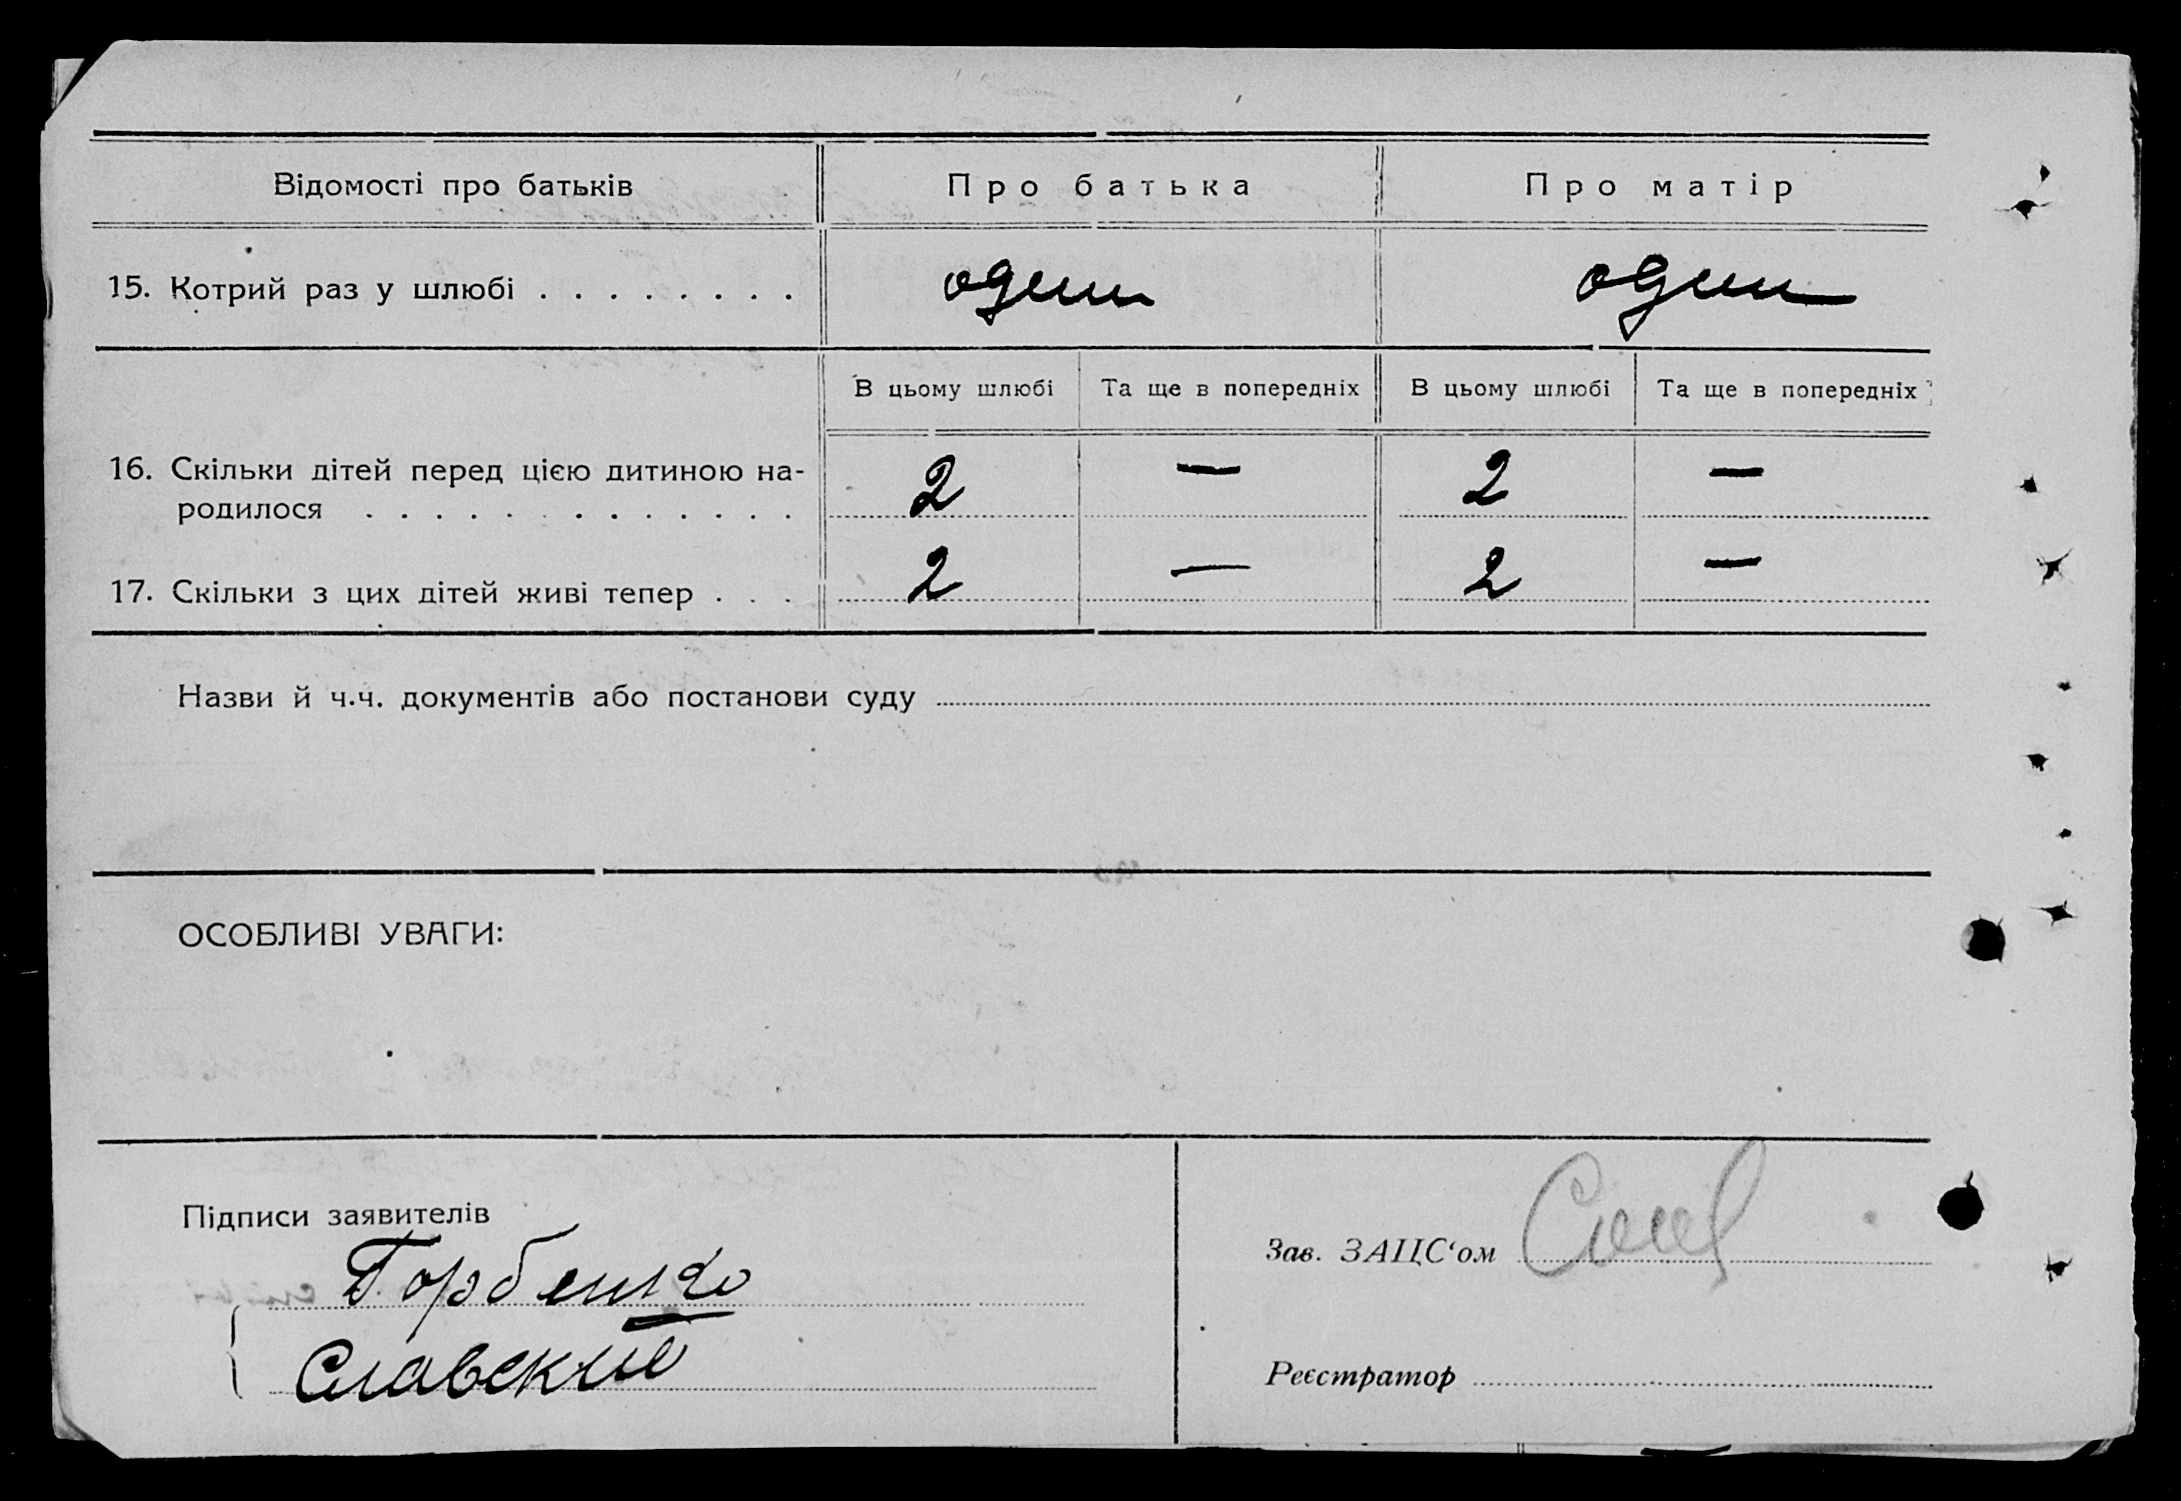 Відомості про батьків Про батька Про матір
15. Котрий раз у шлюбі . . . . . . . . один один
В цьому шлюбі Та ще в попередніх В цьому шлюбі Та ще в попередніх
16. Скільки дітей перед цією дитиною на-
родилося . . . . . . . . . . . . . 2 — 2 —
17. Скільки з цих дітей живі тепер . . . 2 — 2 —
Назви й ч.ч. документів або постанови суду
ОСОБЛИВІ УВАГИ:
Підписи заявителів
Горбенко
Славский
Зав. ЗАЦС‘ом
Реєстратор